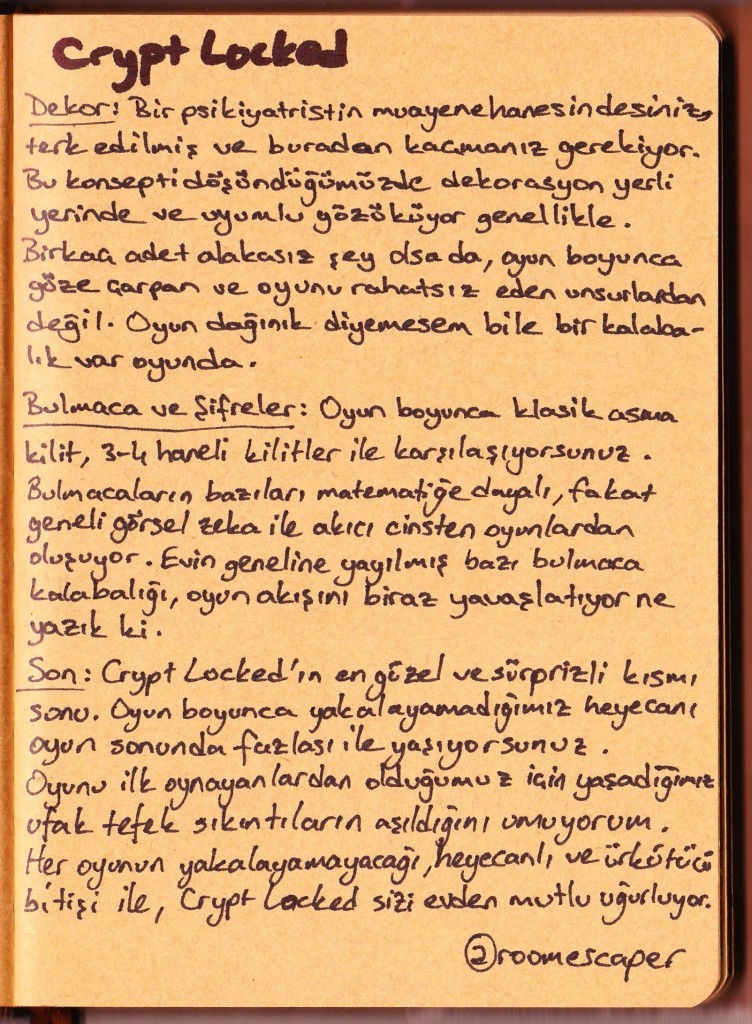 Crypt Locked
Dekor: Bir psikiyatristin muayenehanesindesiniz,
terk edilmiş ve buradan kaçmanız gerekiyor.
Bu konsepti düşündüğümüzde dekorasyon yerli
yerinde ve uyumlu gözüküyor genellikle.
Birkaç adet alakasız şey olsa da, oyun boyunca
göze çarpan ve oyunu rahatsız eden unsurlardan
değil. Oyun dağınık diyemesem bile bir kalaba-
lık var oyunda.
Bulmaca ve Şifreler: Oyun boyunca klasik asma
kilit, 3-4 haneli kilitler ile karşılaşıyorsunuz.
Bulmacaların bazıları matematiğe dayalı, fakat
geneli görsel zeka ile akıcı cinsten oyunlardan
oluşuyor. Evin geneline yayılmış bazı bulmaca
kalabalığı, oyun akışını biraz yavaşlatıyor ne
yazık ki.
Son: Crypt Locked'ın en güzel ve sürprizli kısmı
sonu. Oyun boyunca yakalayamadığımız heyecanı
oyun sonunda fazlası ile yaşıyorsunuz.
Oyunu ilk oynayanlardan olduğumuz için yaşadığımız
ufak tefek sıkıntıların aşıldığını umuyorum.
Her oyunun yakalayamayacağı, heyecanlı ve ürkütücü
bitişi ile, Crypt Locked sizi evden mutlu uğurluyor.
@roomescaper